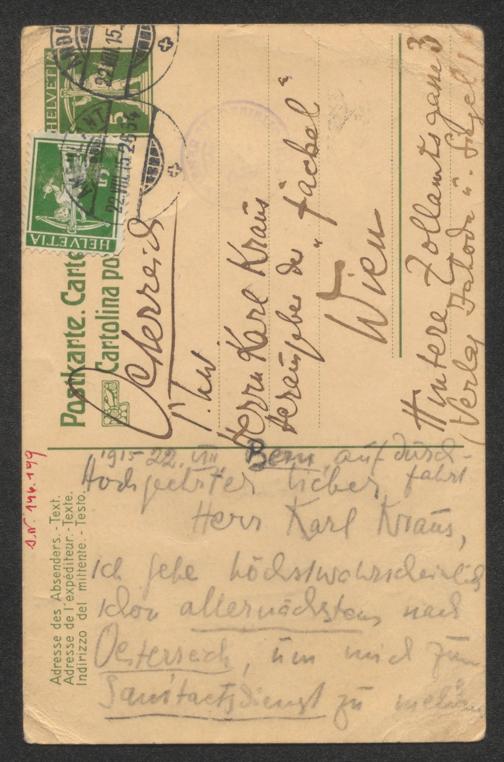 Postkarte. Carte
Cartolina po
HELVETIA
5
HELVETIA
5
22.VIII.15
22.VIII.15
Österreich
Herrn Karl Kraus
Herausgeber der „Fackel“
Wien
Hintere Zollamtsgasse 3
(Verlag Jahoda u. Siegel)
S.N. 144.149
Adresse des Absenders. - Text.
Adresse de l'expéditeur. - Texte.
Indirizzo del mittente. - Testo.
1915 22. VIII Bern, auf Durch-
fahrt
Hochgeehrter lieber
Herr Karl Kraus,
ich gehe höchstwahrscheinlich
schon allernächstens nach
Oesterreich, um mich zum
Sanitaetsdienst zu melden